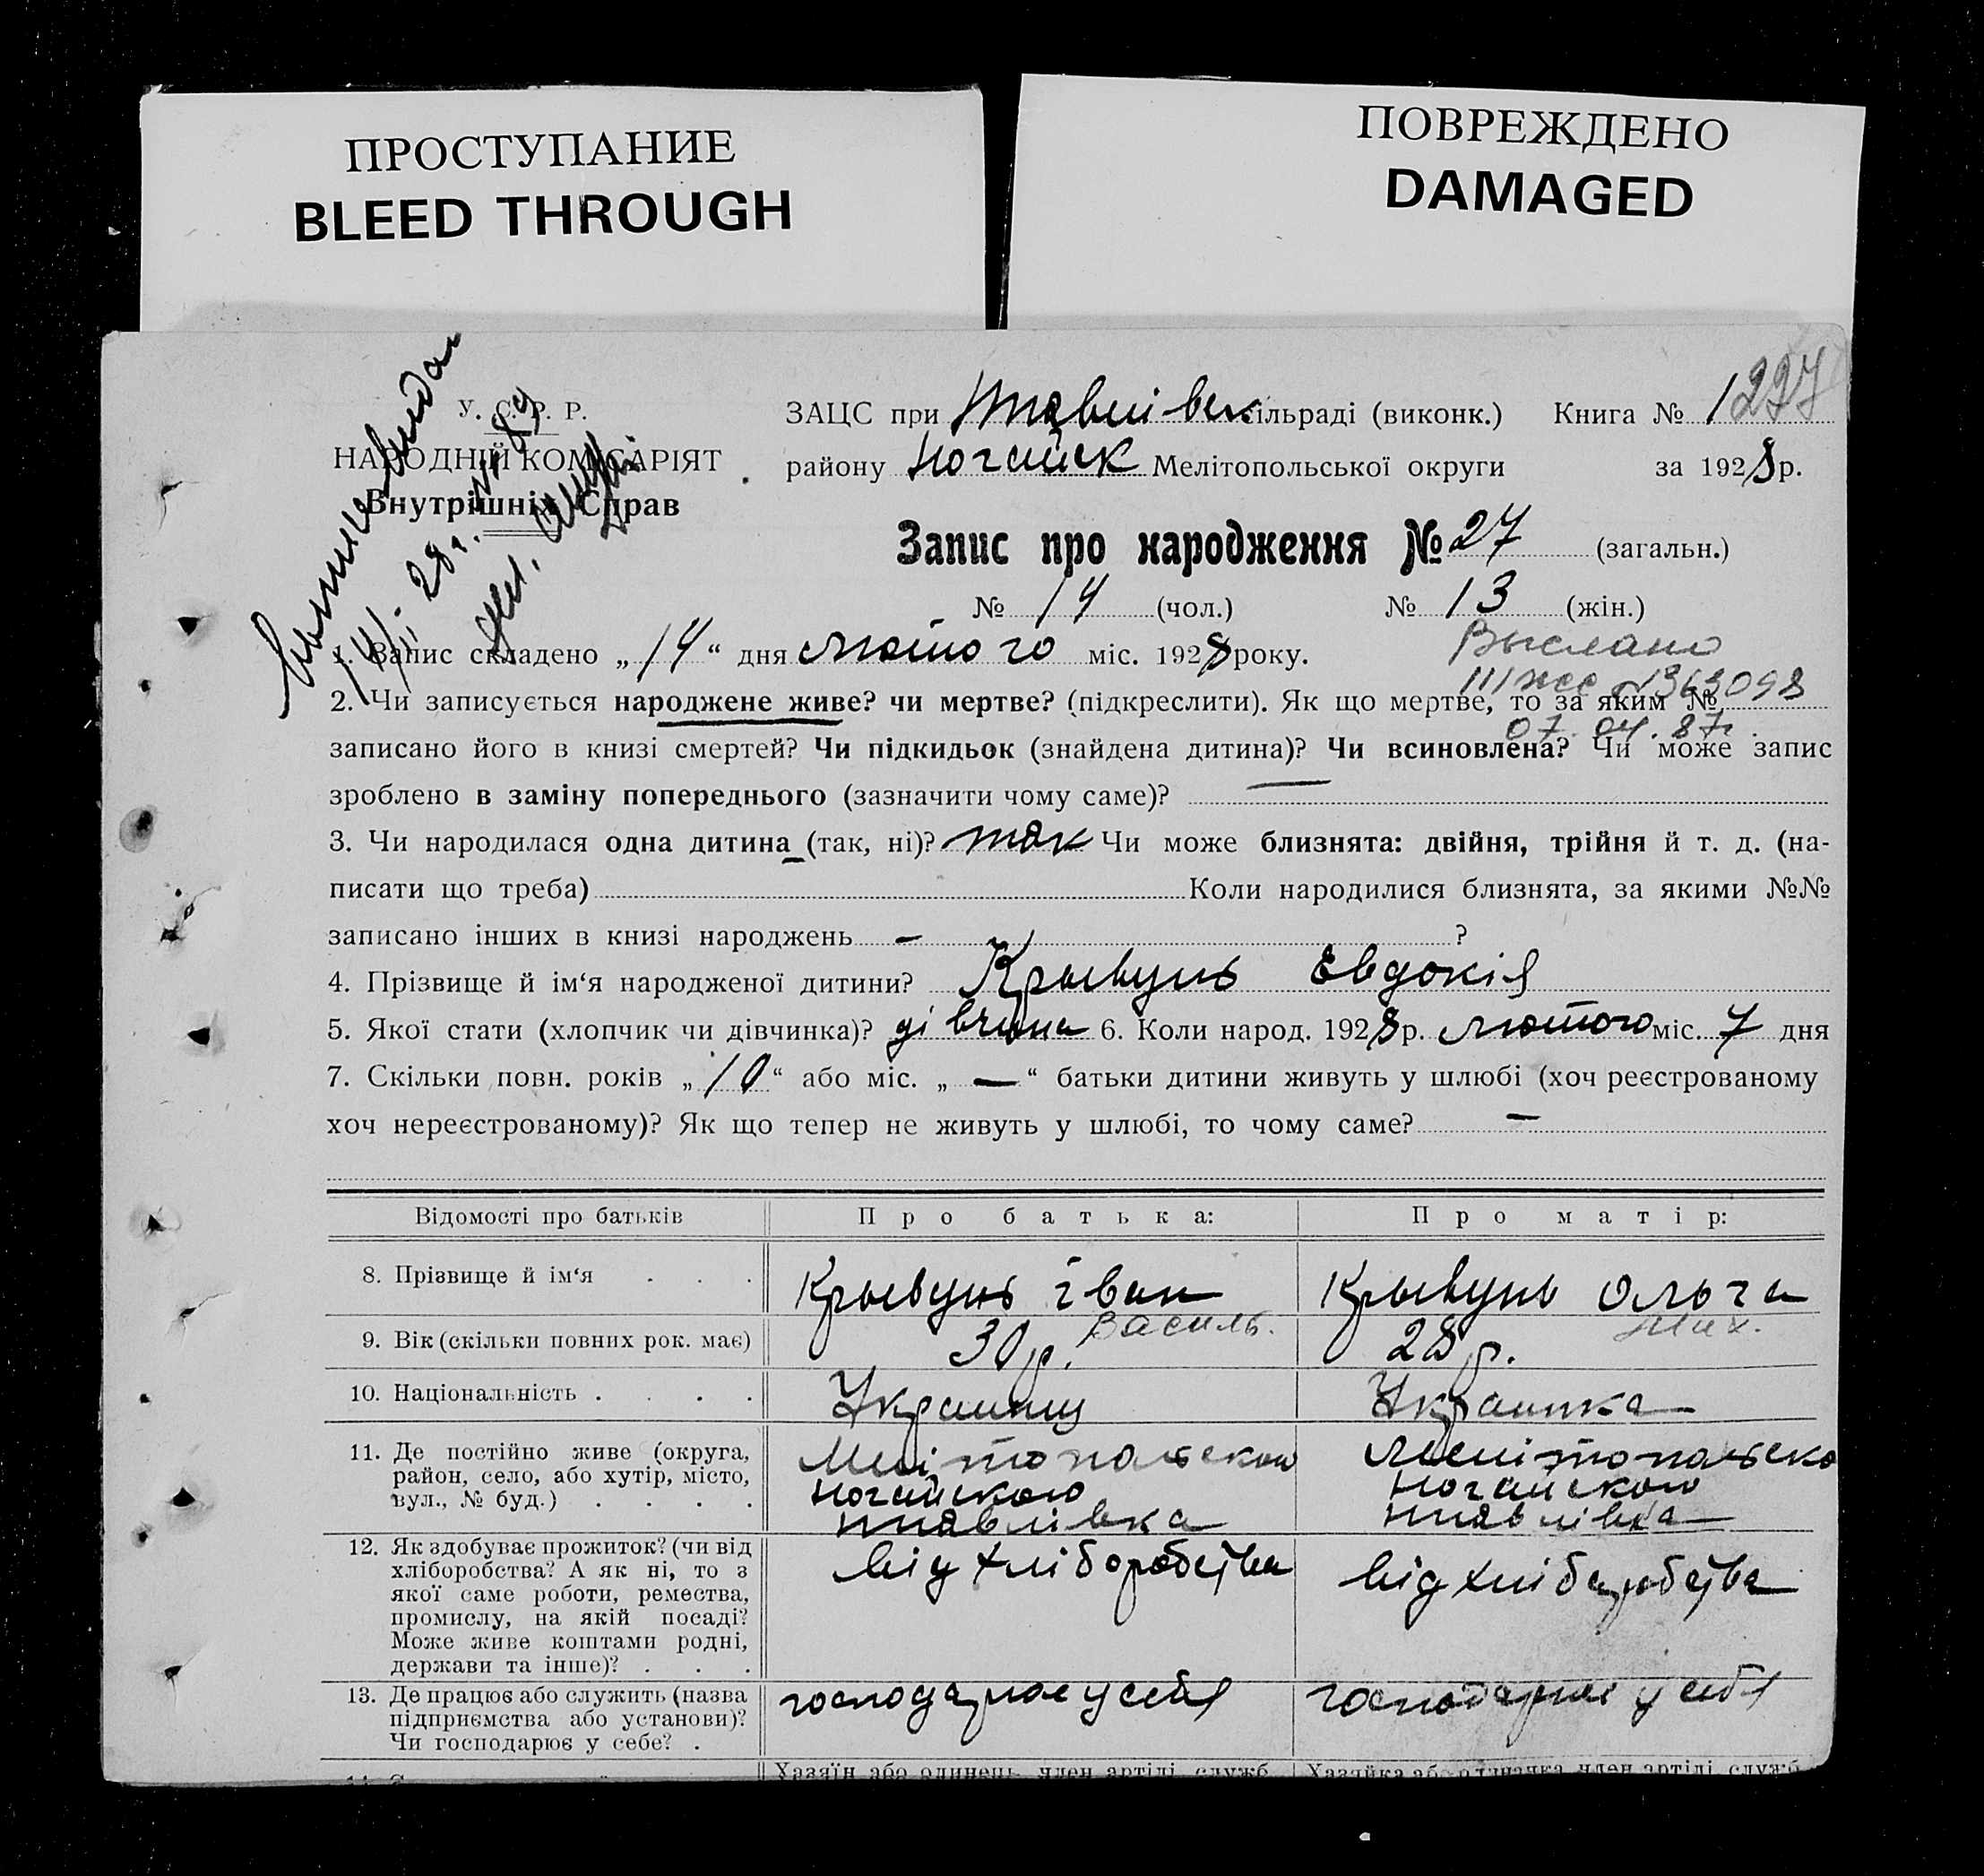 ПРОСТУПАНИЕ
BLEED THROUGH
ПОВРЕЖДЕНО
DAMAGED
У. С. Р. Р.
НАРОДНІЙ КОМІСАРІЯТ
Внутрішніх Справ
28 г. № 89
ЗАЦС при сільраді (виконк.) Книга № 1227
району Ногайск Мелітопольської округи за 1928 р.
Запис про народження № 27 (загальн.)
№ 14 (чол.) № 13 (жін.)
Выслано
1. Запис складено „14“ дня лютого міс. 1928 року.
№363098
2. Чи записується народжене живе? чи мертве? (підкреслити). Як що мертве, то за яким №
07.04.87г.
записано його в книзі смертей? Чи підкидьок (знайдена дитина)? Чи всиновлена? Чи може запис
зроблено в заміну попереднього (зазначити чому саме)? —
3. Чи народилася одна дитина (так, ні)? так Чи може близнята: двійня, трійня й т. д. (на-
писати що треба) Коли народилися близнята, за якими №№
записано інших в книзі народжень — ?
4. Прізвище й ім‘я народженої дитини? Крывунь Евдокія
5. Якої стати (хлопчик чи дівчинка)? дівчина 6. Коли народ. 1928 р. лютого міс. 7 дня
7. Скільки повн. років „10“ або міс. „—“ батьки дитини живуть у шлюбі (хоч реєстрованому
хоч нереєстрованому)? Як що тепер не живуть у шлюбі, то чому саме? —
Відомості про батьків Про батька: Про матір:
8. Прізвище й ім‘я . . . Крывунь Іван Крывунь Ольга
Василь. Мих.
9. Вік (скільки повних рок. має) 30 р. 28 р.
10. Національність . . . . Украинц Украинка
11. Де постійно живе (округа,
район, село, або хутір, місто,
вул., № буд.) . . . .
Мелітопольскою
Ногайскою
Мелітопольско
Ногайскою
12. Як здобуває прожиток? (чи від
хліборобства? А як ні, то з
якої саме роботи, ремества,
промислу, на якій посаді?
Може живе коштами родні,
держави та інше)? . . .
від хліборобства
від хліборобства
13. Де працює або служить (назва
підприємства або установи)?
Чи господарює у себе? .
господарює у себя
господарює у себя
Хазяїн або одинець, член артілі, служб. Хазяйка або одиначка, член артілі, служб.